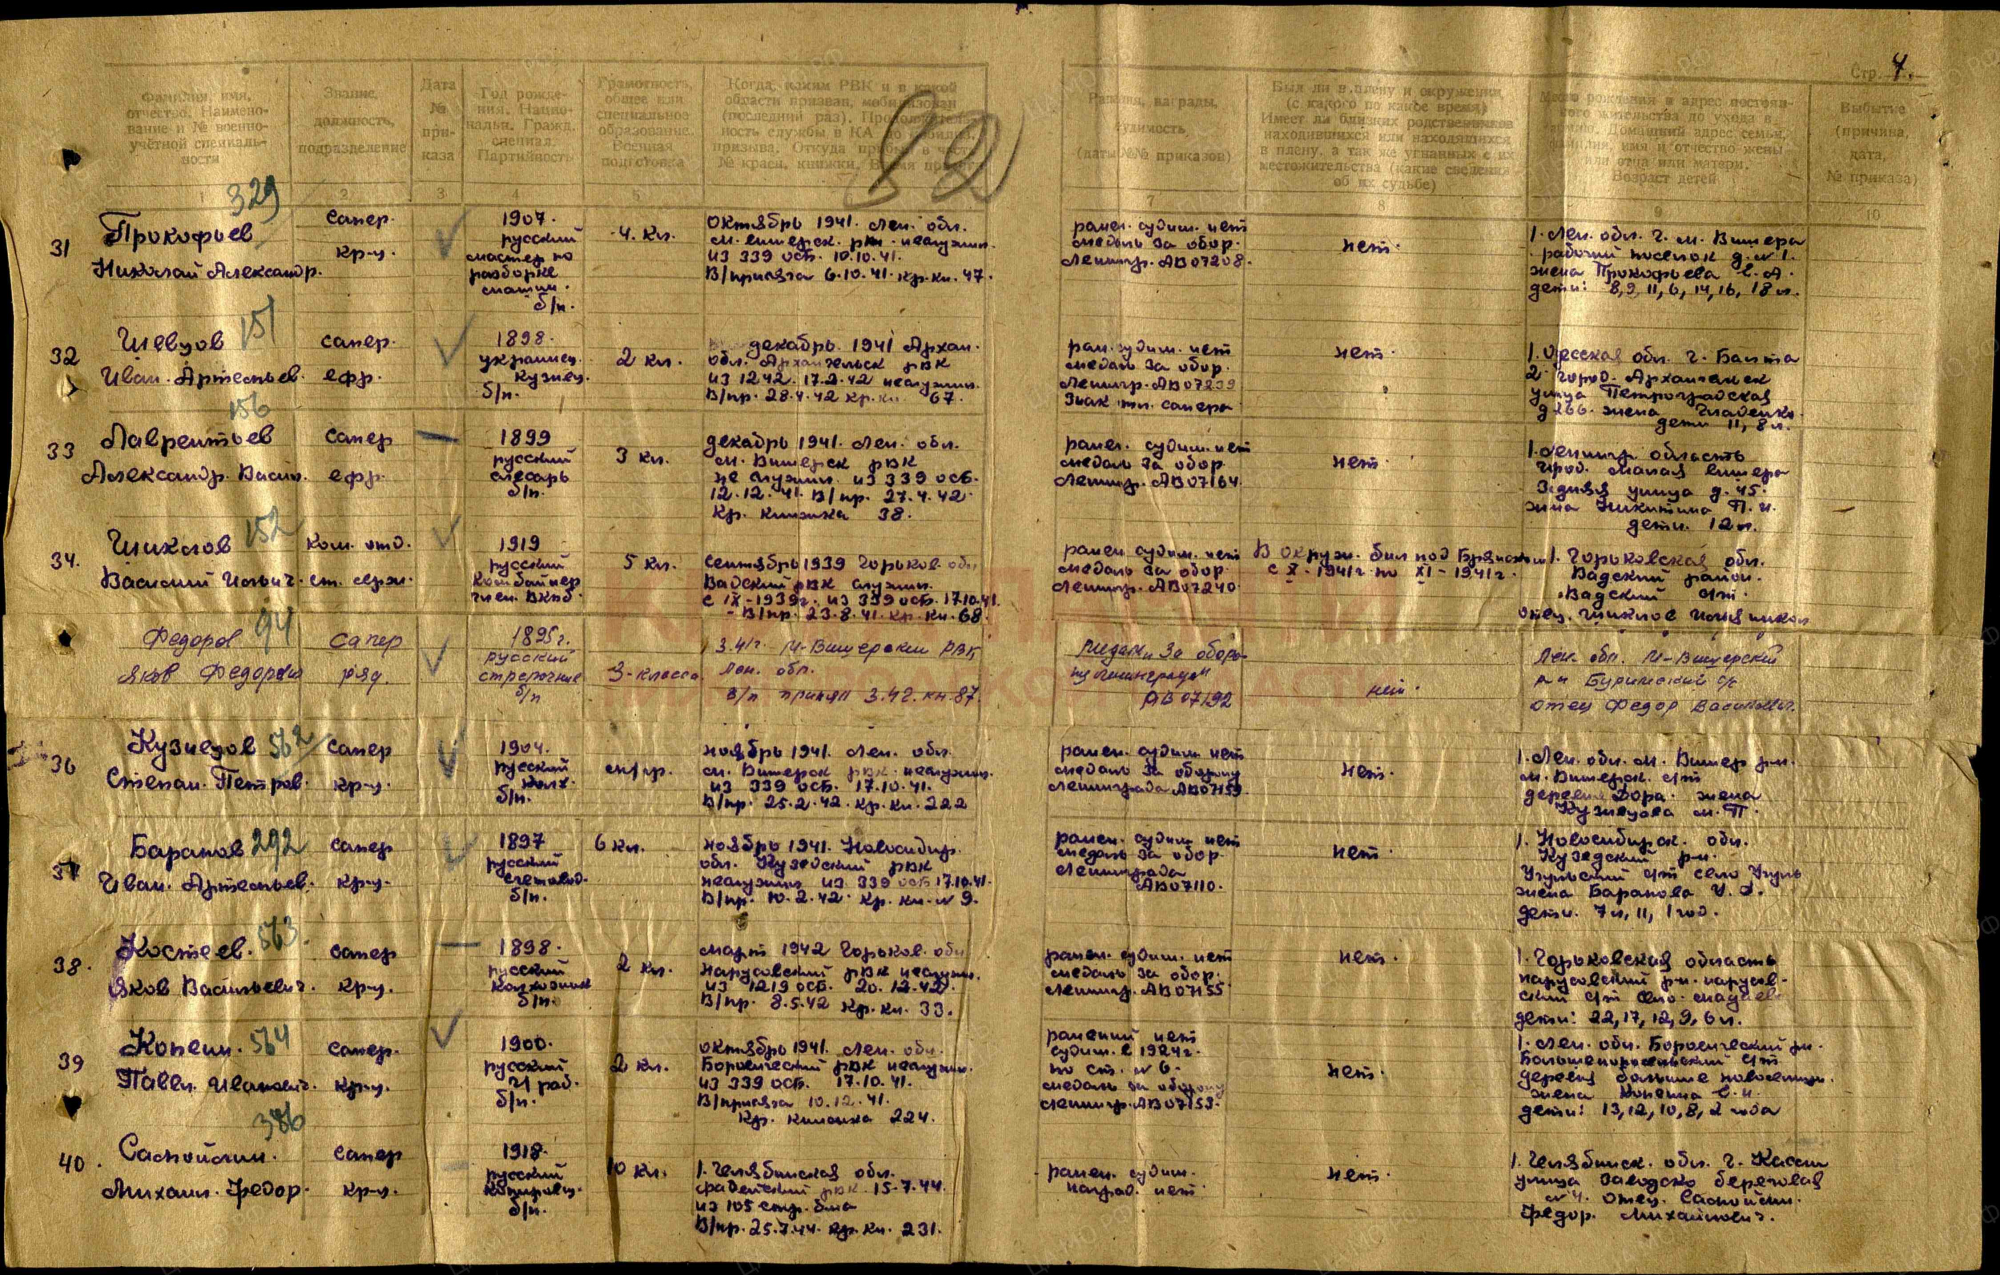 Стр. 4.
Фамилия, имя,
отчество. Наимено-
вание и № военно-
учётной специаль-
ности
Звание,
должность,
подразделение
Дата
№
при-
каза
Год рожде-
ния. Нацио-
нальн. Гражд.
специал.
Партийность
Грамотность,
общее или
специальное
образование.
Военная
подготовка
Когда, каким РВК и в какой
области призван, мобилизован
(последний раз).
призыва. Откуда
№ красн. книжки.
Ранения, награды,
судимость,
(даты №№ приказов)
Был ли в плену и окружении
(с какого по какое время)
Имеет ли близких родственников
находившихся или находящихся
в плену, а так же угнанных с их
местожительства (какие сведения
об их судьбе)
Место рождения и адрес постоян-
ного жительства до ухода в
армию. Домашний адрес семьи,
фамилия, имя и отчество жены
или отца или матери.
Возраст детей
Выбытие
(причина,
дата,
№ приказа)
1 2 3 4 5 7 8 9 10
329
31
Прокофьев
Николай Александр.
сапер.
кр-ц.
1907.
русский
мастер по
разборке
машин.
б/п.
4. кл.
октябрь 1941. Лен. обл.
м. вишерск. рвк. неслужил.
из 339 осб. 10.10.41.
В/присяга 6.10.41. кр. кн. 47.
ранен. судим. нет
медаль за обор.
Ленингр. АВ07208.
нет.
1. Лен. обл. г. м. Вишера
рабочий поселок д. №1.
жена Прокофьева Е. А.
дети: 8, 9, 11, 6, 14, 16, 18 л.
151
32
Шевцов
Иван. Артемьев.
сапер.
ефр.
1898.
украинец.
кузнец.
б/п.
2 кл.
декабрь 1941 Архан.
обл. Архангельск РВК
из 1242. 17.2.42 неслужил.
В/пр. 28.4.42 кр. кн. 67.
ран. судим. нет
медаль за обор.
Ленингр. АВ07239
Знак отл. сапера
нет.
1. Одесская обл. г. Балта
2 город. Архангельск
улица Петроградская
д 266. жена
дети 11, 8 л.
156
33
Лаврентьев
Александр. Васил.
сапер
ефр.
1899
русский
слесарь
б/п.
3 кл.
декабрь 1941. Лен. обл.
м. Вишерск РВК
не служил. из 339 осб.
12.12.41. В/пр. 27.4.42.
Кр. книжка 38.
ранен. судим. нет
медаль за обор.
Ленингр. АВ07164.
нет.
1. Ленингр. область
гор. Малая вишера
Задняя улица д. 45.
жена Никитина П. И.
дети. 12 л.
152
34.
Шиклов
Василий Ильич.
ком. отд.
ст. серж.
1919
русский
комбайнер
член. ВКПб.
5 кл.
сентябрь 1939 Горьков. обл.
Вадский РВК служил.
с IX-1939г. из 339 осб. 17.10.41.
В/пр. 23.8.41. кр. кн. 68.
ранен. судим. нет
медаль за обор.
Ленингр. АВ07240.
В окруж. был под Брянском
с X-1941г. по XI-1941г.
1. Горьковская обл.
Вадский район.
Вадский с/с
отец. Шиклов Илья
94
Федоров
Яков Федоров
сапер
ряд
1895г.
русский
стрелочник
б/п
3-класса
3.41г. М-Вишерский РВК
Лен. обл.
в/п принял 3.42. кн. 87.
Медаль За оборо-
ну Ленинграда
АВ 07192
нет.
Лен. обл. М-Вишерский
р-н с/с
отец Федор Васильевич.
562
36
Кузнецов
Степан. Петров.
сапер
кр-ц.
1904.
русский
колх
б/п.
ноябрь 1941. Лен. обл.
м. Вишерск РВК. неслужил.
из 339 осб. 17.10.41.
В/пр. 25.2.42. кр. кн. 222
ранен. судим нет
медаль за оборону
Ленинграда АВ07159.
нет.
1. Лен. обл. м. Вишер. р-н.
м. Вишерск. с/с
деревня Дора. жена
Кузнецова м. П.
292
37
Баранов
Иван. Артемьев.
сапер
кр-ц.
1897
русский
счетовод.
б/п.
6 кл.
ноябрь 1941. Новосибир.
обл. Кузедский РВК
неслужил из 339 осб 17.10.41.
В/пр. 10.2.42. кр. кн. № 9.
ранен. судим нет
медаль за обор.
Ленинграда
АВ07110.
нет.
1. Новосибирск. обл.
Кузедский р-н.
жена Баранова
дети. 7 л, 11, 1 год.
563
38.
Костеев.
Яков Васильевич.
сапер
кр-ц.
1898.
русский
колхозник
б/п.
2 кл.
март 1942 Горьков. обл
Наруксовский РВК неслуж.
из 1219 осб. 20.12.42г.
В/пр. 8.5.42 кр. кн. 33.
ранен. судим нет
медаль за обор.
Ленингр. АВ07155
нет.
1. Горьковская область
дети: 22, 17, 12, 9, 6 л.
564
39
Конеин.
Павел. Иванович.
сапер.
кр-ц.
1900.
русский
б/п.
2 кл.
октябрь 1941. Лен. обл.
Боровический РВК неслужил.
из 339 осб. 17.10.41.
В/присяга 10.12.41.
Кр. книжка 224.
ранений нет
судим. в 1924г.
по ст. № 6.
медаль за оборону
Ленингр. АВ07153.
нет.
1. Лен. обл. Боровический р-н.
деревня
жена
дети: 13, 12, 10, 8, 2 года
386
40.
Михаил. Федор.
сапер
кр-ц.
1918.
русский
б/п.
10 кл.
1. Челябинская обл.
РВК 15.7.44.
из 105 стр. б-на
В/пр. 25.7.44. кр. кн. 231.
ранен. судим.
наград. нет
нет.
1. Челябинск. обл. г. Касли
улица Заводско береговая
№ 4. отец.
Федор. Михайлович.